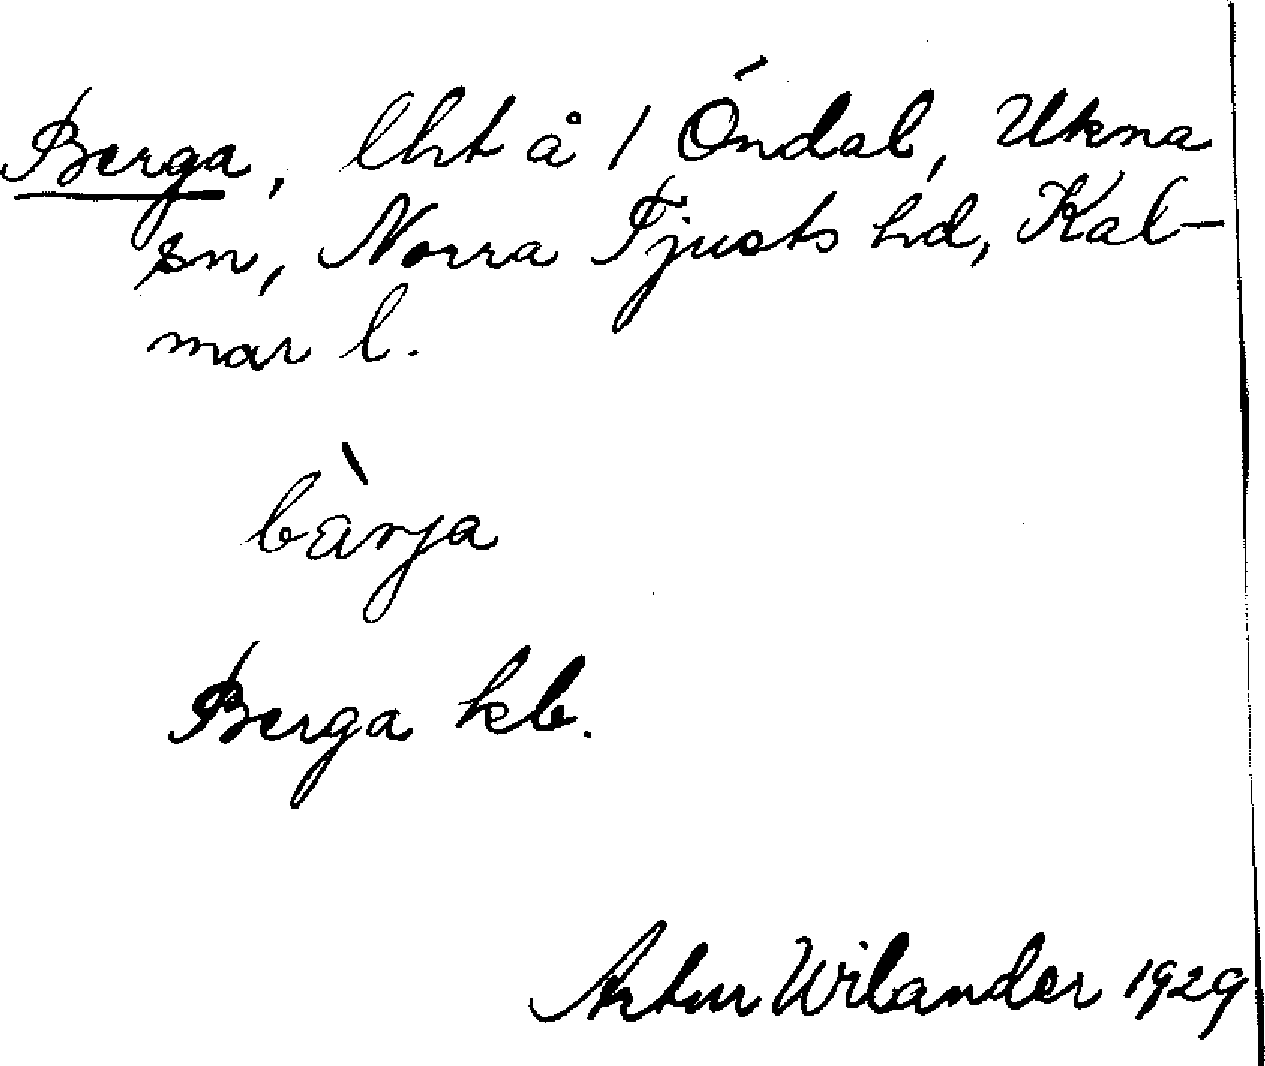 Berga, lht å 1 Öndal, Ukna
sn, Norra Tjusts hd, Kal-
mar l.
bàrja
Berga kb.
Artur Wilander 1929